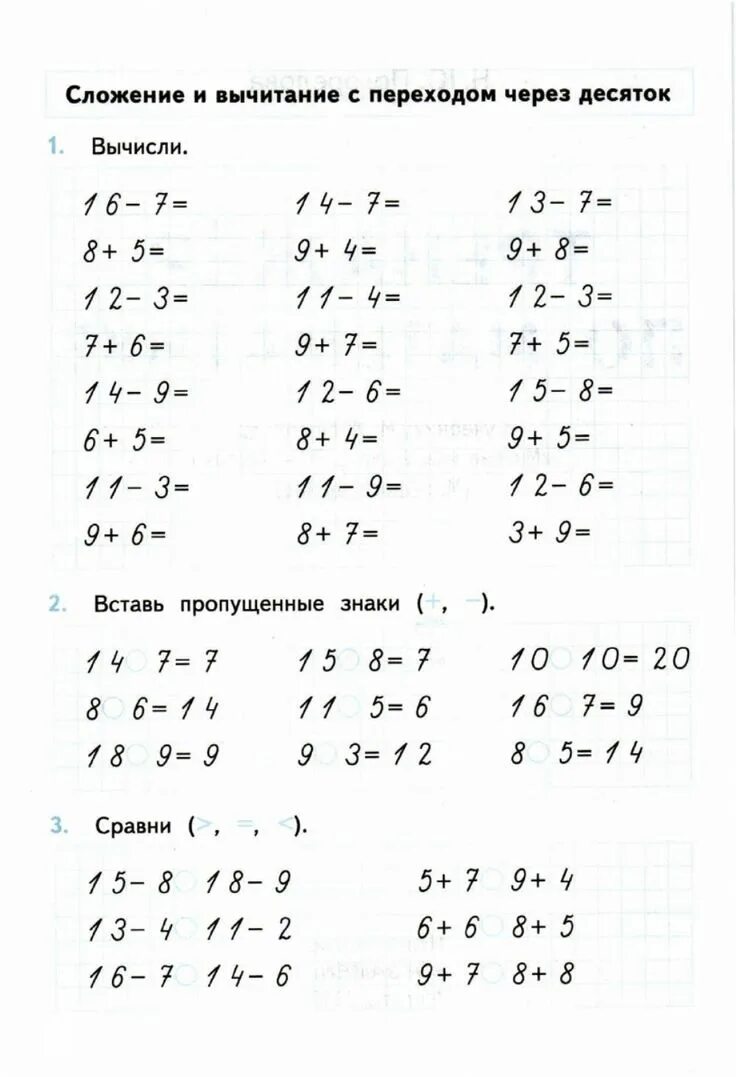 Сложение и вычитание с переходом через десяток
1. Вычисли.
16-7= 14-7= 13-7=
8+5= 9+4= 9+8=
12-3= 11-4= 12-3=
7+6= 9+7= 7+5=
14-9= 12-6= 15-8=
6+5= 8+4= 9+5=
11-3= 11-9= 12-6=
9+6= 8+7= 3+9=
2. Вставь пропущенные знаки (+, -).
14○7=7 15○8=7 10○10=20
8○6=14 11○5=6 16○7=9
18○9=9 9○3=12 8○5=14
3. Сравни (>, =, <).
15-8○18-9 5+7○9+4
13-4○11-2 6+6○8+5
16-7○14-6 9+7○8+8